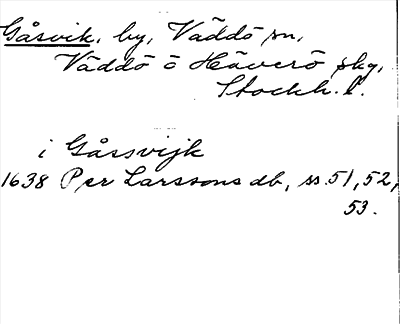 Gåsvik, by, Väddö sn,
Väddö o Häverö skg,
Stockh. l.
i Gåssvijk
1638 Per Larssons db, ss. 51, 52,
53.